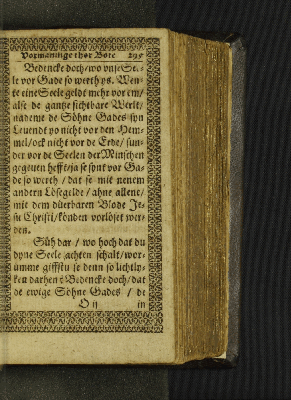 Vormaninge thor Bote 295
Bedencke doch/wo vnse See-
le vor Gade so werth ys. Wen-
te eine Seele geldt mehr vor em/
alse de gantze sichtbare Werlt/
nademe de Söhne Gades syn
Leuendt yo nicht vor den Hem-
mel/ock nicht vor de Erde/sun-
der vor de Seelen der Minschen
gegeuen hefft/ja se synt vor Ga-
de so werth / dat se mit nenem
andern Lösegelde / ahne allene/
mit dem düerbaren Blode Je-
su Christi/könden vorlöset wer-
den.
Süh dar / wo hoch dat du
dyne Seele achten schalt/wor-
umme giffstu se denn so lichtly-
ken darhen? Bedencke doch/dat
de ewige Söhne Gades / de
O ij in